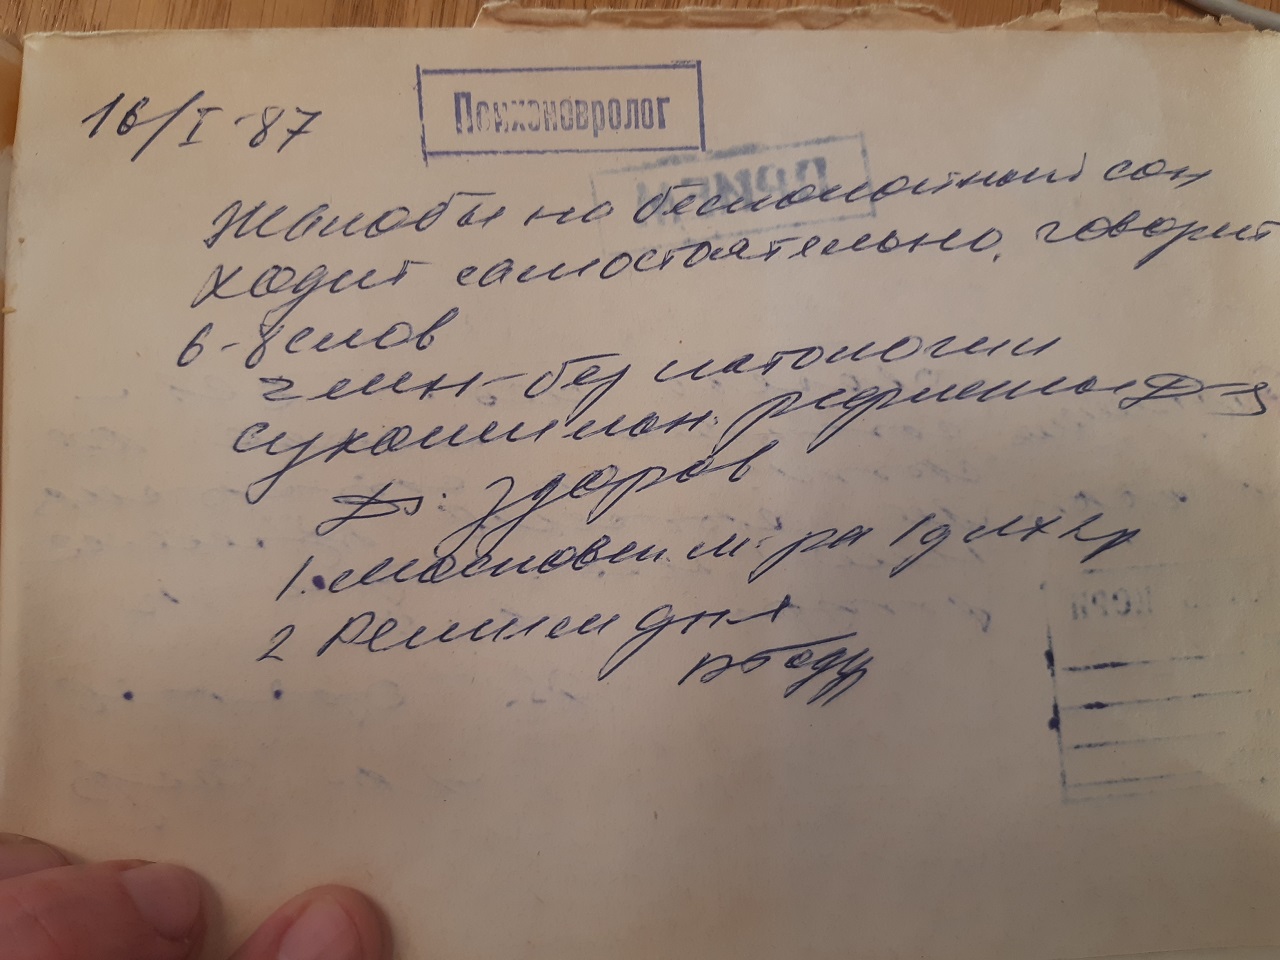 16/I-87
Психоневролог
Жалобы на беспокойный сон
ходит самостоятельно, говорит
6-8 слов
чмн - без патологии
сухожильн. рефлексы D=S
Ds: здоров
1.
2 Режим дня